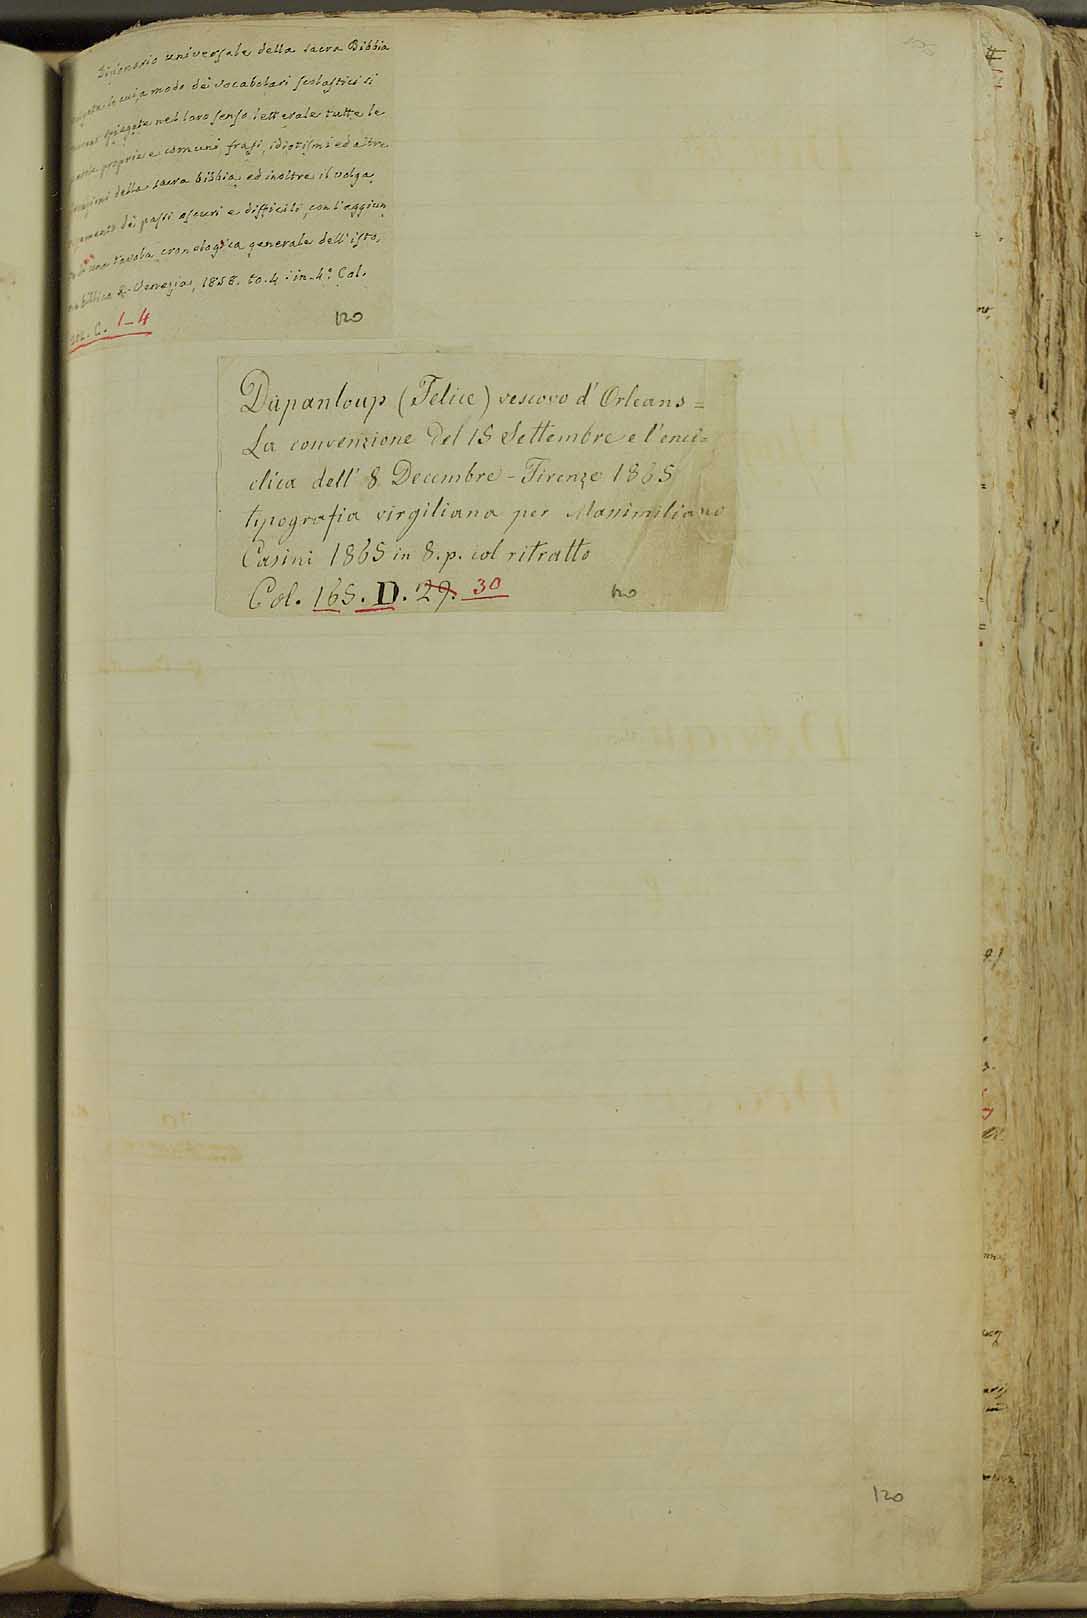 Dizionario universale della sacra Bibbia
cui, a modo dei vocabolari scolastici si
spiegate nel loro senso letterale tutte le
proprie e comuni, frasi, idiotismi ed altre
della sacra bibbia, ed inoltre il volga,
dei passi oscuri e difficili, con l'aggiun
una tavola cronologica generale dell'isto,
biblica &. Venezia, 1858. to. 4. in-4.º Col.
C. 1-4
120
Dupanloup (Felice) vescovo d'Orleans =
La convenzione del 15 Settembre e l'enci=
clica dell' 8 Decembre - Firenze 1865
tipografia virgiliana per Massimiliano
Casini 1865 in 8. p. col ritratto
Col. 165. D. 29. 30
120
120